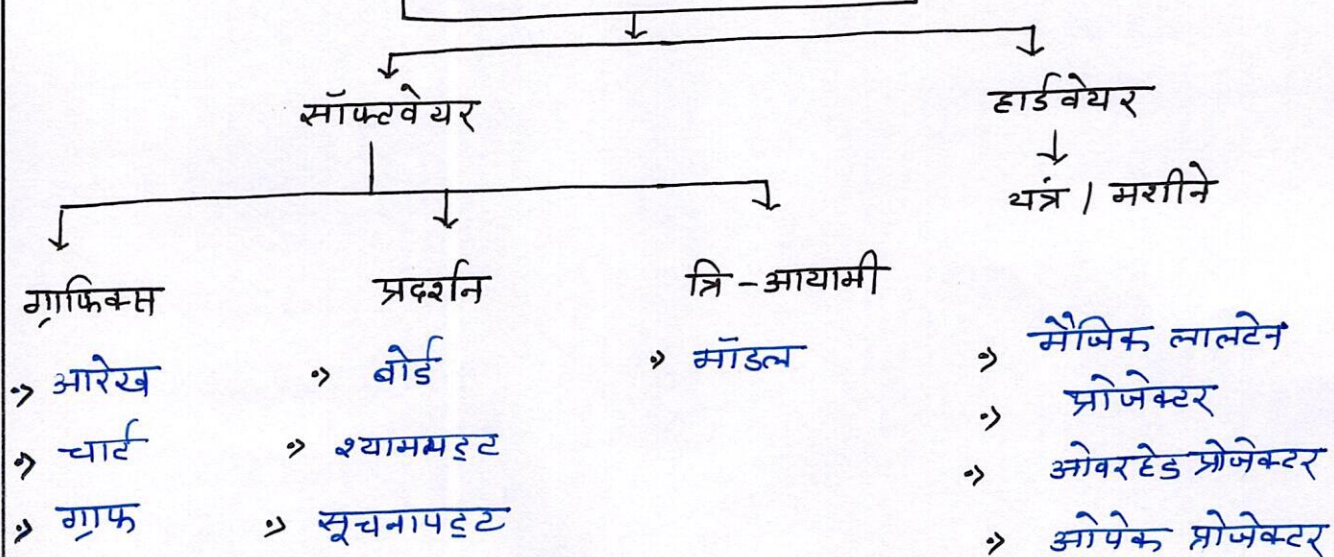 सॉफ्टवेयर
हार्डवेयर
यत्रं / मशीने
ग्राफिक्स
प्रदर्शन
त्रि-आयामी
आरेख
चार्ट
ग्राफ
बोर्ड
श्यामपट्ट
सूचनापट्ट
मॉडल
मैजिक लालटेन
प्रोजेक्टर
ओवरहेड प्रोजेक्टर
ओपेक प्रोजेक्टर